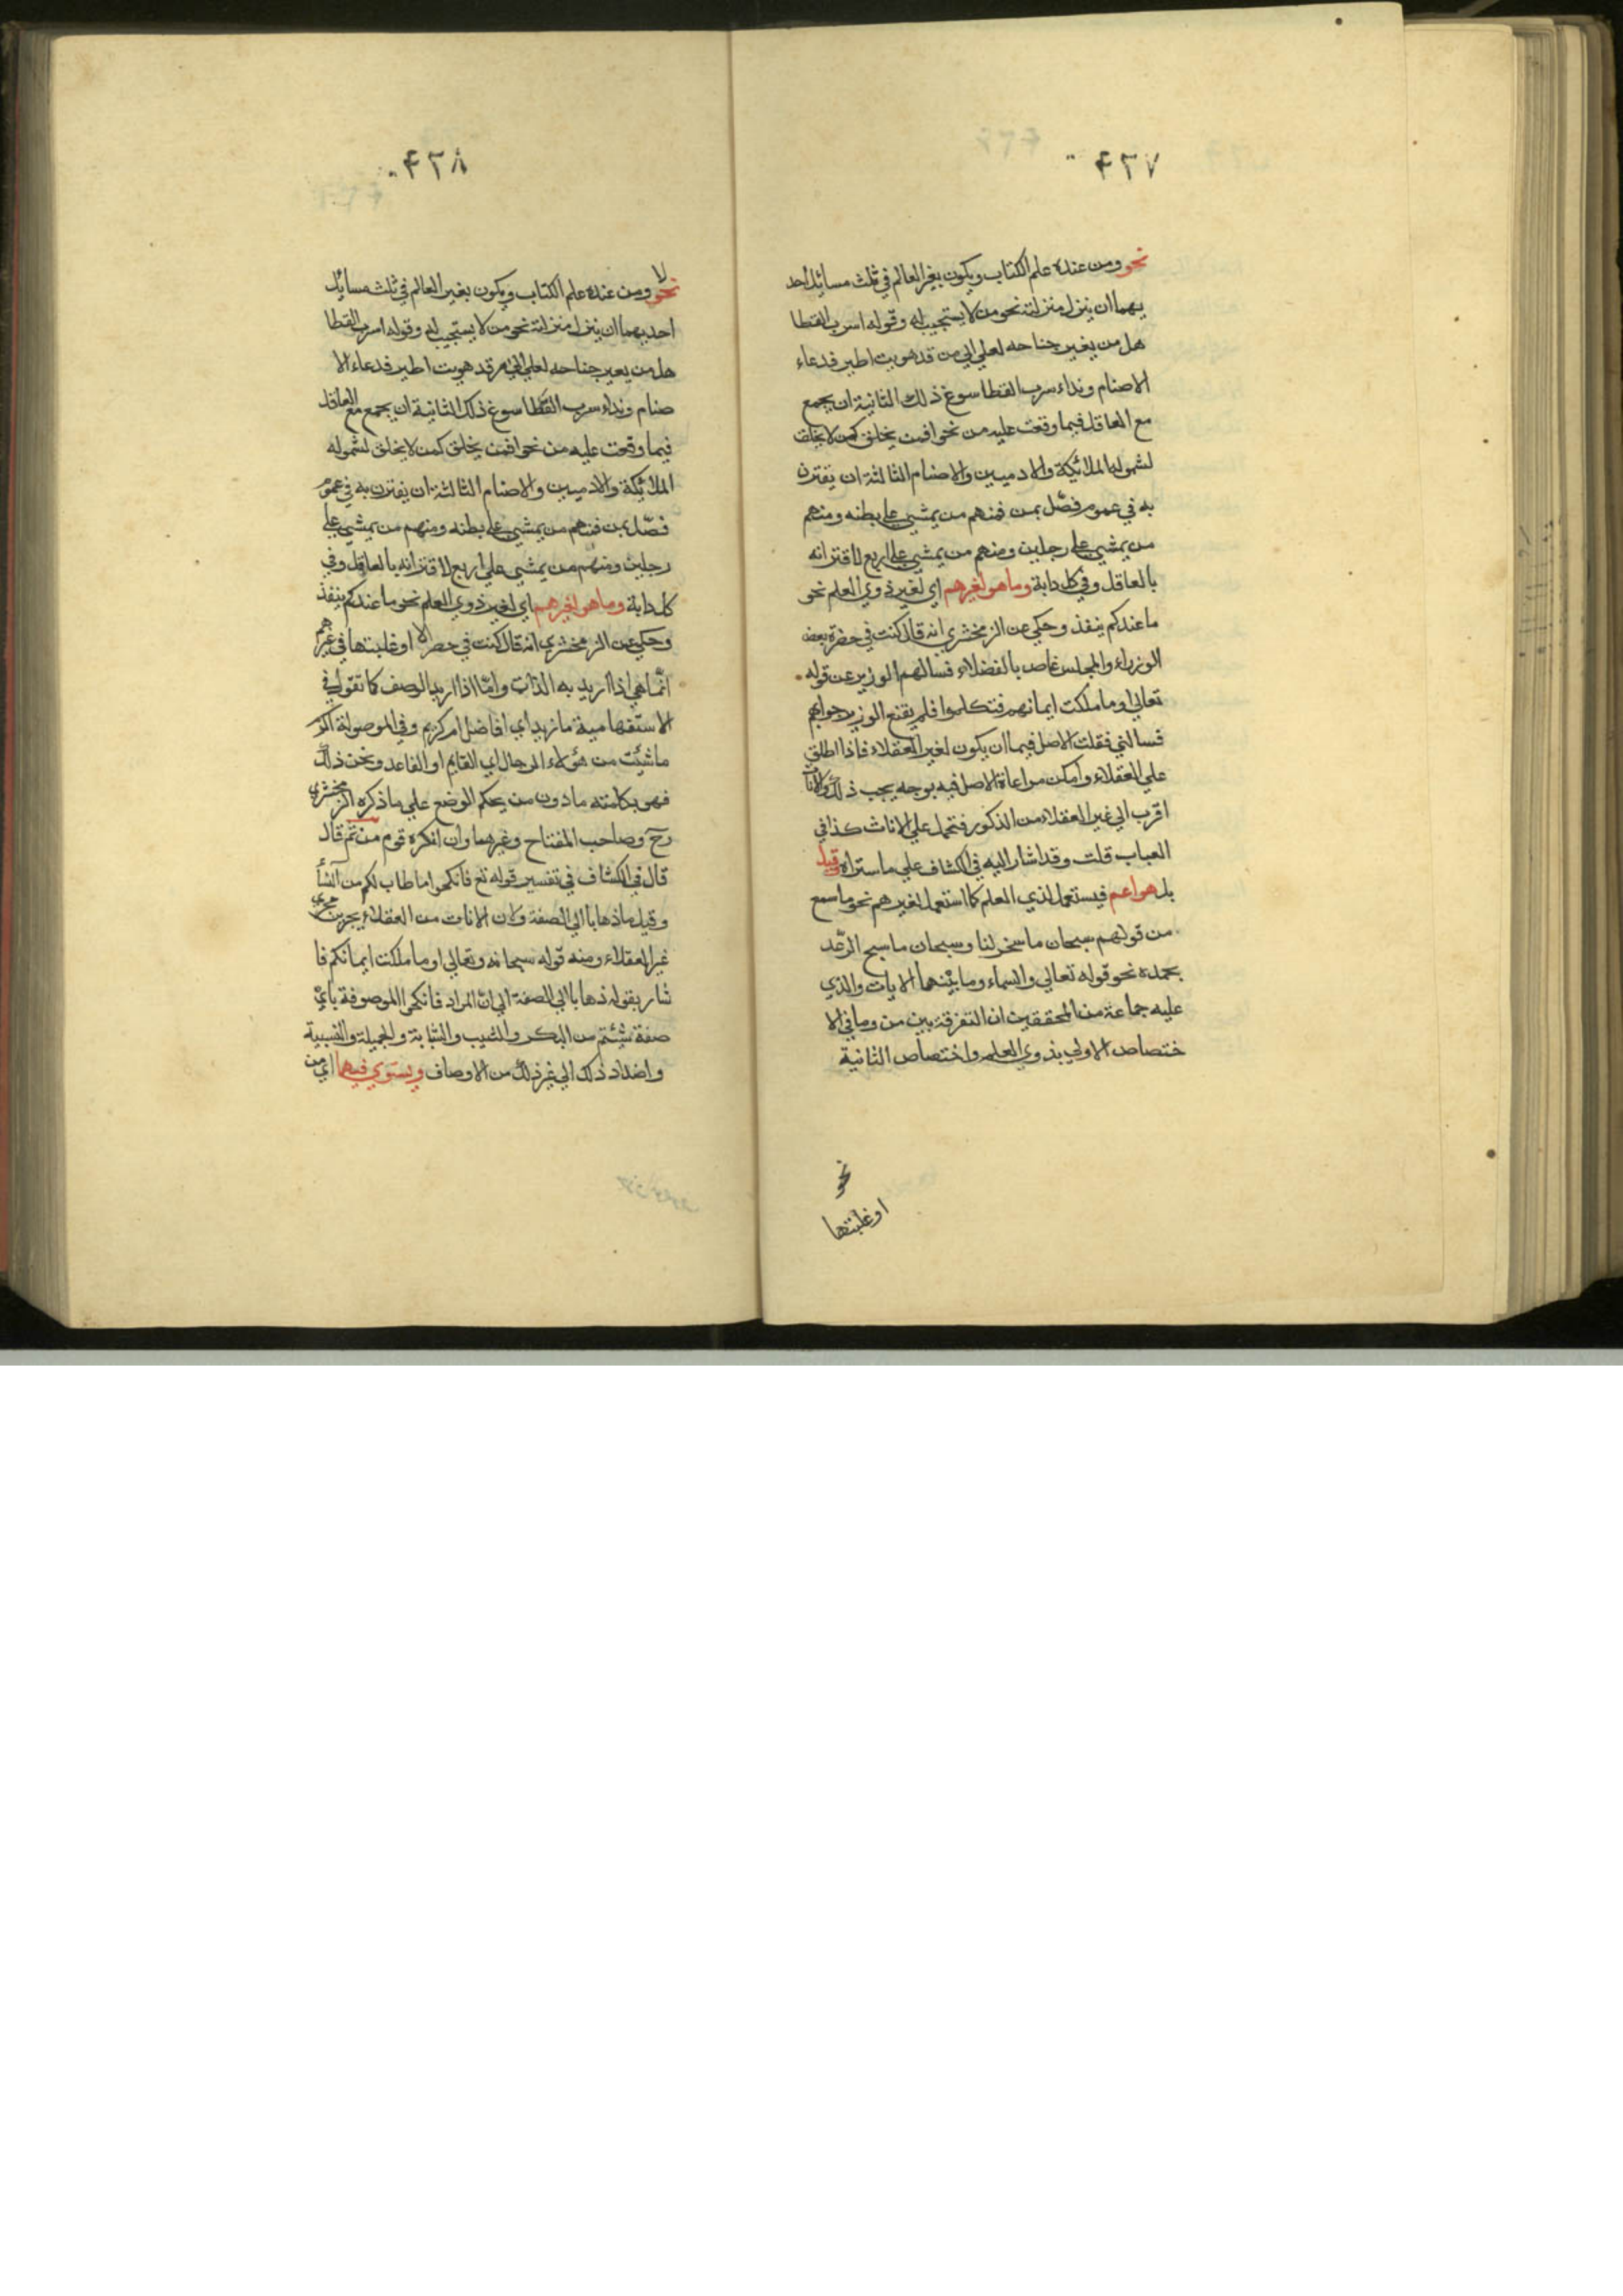 ٤٢٧
نحو ومن عنده علم الكتاب ويكون بغير العالم في ثلث مسائل احد
يهما ان ينزل منزلته نحو من لا يستجيب له وقوله اسرب القطا
هل من يغير جناحه لعلي الى من قد هويت اطير فدعاء
الاصنام ونداء سرب القطا سوغ ذلك الثانية ان يجمع
مع العاقل فيما وقعت عليه من نحو افمن يخلق كمن لا يخلق
لشموله الملائكة والادميين والاصنام الثالثة ان يقترن
به في عموم فصّل بمن فمنهم من يمشي على بطنه ومنهم
من يمشي على رجلين ومنهم من يمشي على اربع لاقترانه
بالعاقل وفي كل دابة وما هو لغيرهم اي لغير ذوي العلم نحو
ما عندكم ينفذ وحكي عن الزمخشري انه قال كنت في حضرة بعض
الوزراء والمجلس غاص بالفضلاء فسالهم الوزير عن قوله
تعالى او ما ملكت ايمانهم فتكلموا فلم يقنع الوزير جوابهم
فسالني فقلت الاصل فيما ان يكون لغير العقلاء فاذا اطلق
علي العقلاء وامكن مراعاة الاصل فيه بوجه يجب ذلك والاناث
اقرب الي غير العقلاء من الذكور فتحمل علي الاناث كذا في
العباب قلت وقد اشار اليه في الكشاف علي ما ستراه وقيل
بل هو اعم فيستعمل لذي العلم كما استعمل لغيرهم نحو ما سمع
من قولهم سبحان ما سخر لنا وسبحان ما سبح الرّعد
بحمده نحو قوله تعالي والسماء وما بينهما الايات والذي
عليه جماعة من المحققين ان التفرقة بين من وما في الا
ختصاص الاولي بذوي العلم واختصاص الثانية
نحو
او غلبتها
٤٢٨
لا
نحو ومن عنده علم الكتاب ويكون بغير العالم في ثلث مسائل
احديهما ان ينزل منزلته نحو من لا يستجيب له وقوله اسرب القطا
هل من يعير جناحه لعلي الي من قد هويت اطير فدعاء الا
صنام ونداء سرب القطا سوغ ذلك الثانية ان يجمع مع العاقل
فيما وقعت عليه من نحو افمن يخلق كمن لا يخلق لشموله
الملائكة والادميين والاصنام الثالثة ان يقترن به في عموم
فصّل بمن فمنهم من يمشي على بطنه ومنهم من يمشي علي
رجلين ومنهم من يمشي علي اربع لاقترانه بالعاقل وفي
كل دابة وما هو لغيرهم اي لغير ذوي العلم نحو ما عندكم ينفذ
وحكي عن الزمخشري انه قال كنت في حضر الي او غلبتها في غيرهم
انّما هي اذا اريد به الذات وامّا اذا اريد الوصف كما تقول في
الاستفهامية ما زيد اي افاضل ام كريم وفي الموصولة اكرم
ما شئت من هؤلاء الرجال اي القايم او القاعد ونحن ذلك
فهو بكلمته ما دون من يحكم الوضع علي ما ذكره الزمخشري
رح وصاحب المفتاح وغيرهما وان انكره قوم من ثم قال
قال في الكشاف في تفسير قوله تع فانكحوا ما طاب لكم من النسأ
وقيل ما ذهابا الي الصفة ولان الاناث من العقلاء يجرين مجري
غير العقلاء ومنه قوله سبحانه وتعالي او ما ملكت ايمانكم فا
شار بقوله ذهابا الي الصفة الي انّ المراد فانكحوا الموصوفة باي
صفة شئتم من البكر والثيب والشابة والجميلة والنسيبة
واضداد ذلك الي غير ذلك من الاوصاف ويستوي فيهما اي من